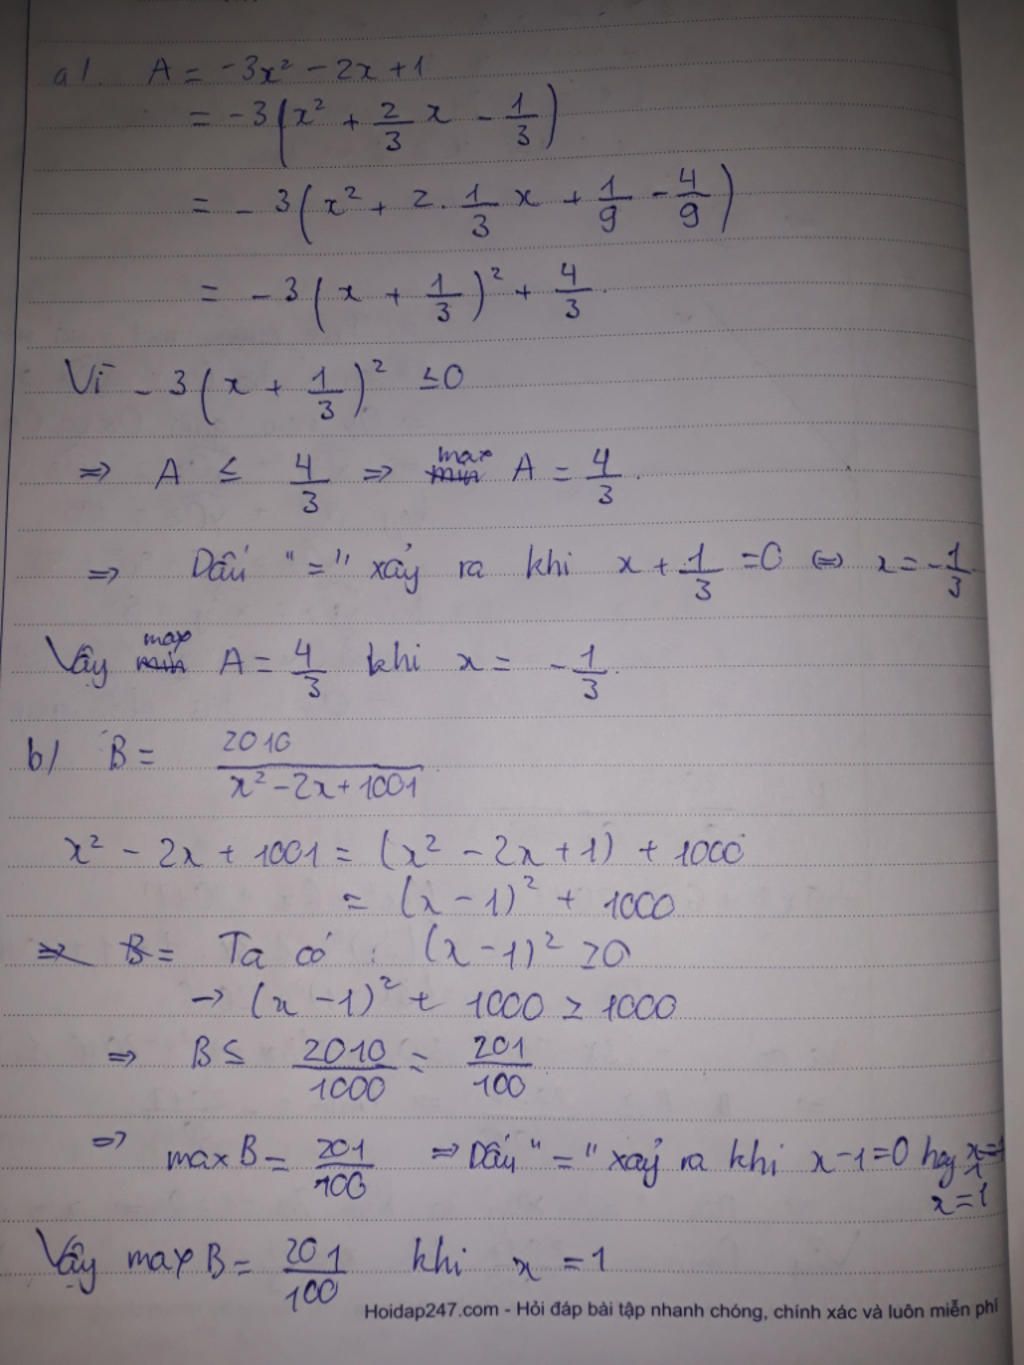 a/. A = -3x² - 2x + 1
= -3(x² + 2/3 x - 1/3)
= -3(x² + 2. 1/3 x + 1/9 - 4/9)
= -3(x + 1/3)² + 4/3.
Vì -3(x + 1/3)² ≤ 0
⇒ A ≤ 4/3 ⇒ max A = 4/3.
⇒ Dấu "=" xảy ra khi x + 1/3 = 0 ⇔ x = -1/3
Vậy max A = 4/3 khi x = -1/3.
b/ B = 2010/(x² - 2x + 1001)
x² - 2x + 1001 = (x² - 2x + 1) + 1000
= (x - 1)² + 1000
B = Ta có : (x - 1)² ≥ 0
→ (x - 1)² + 1000 ≥ 1000
⇒ B ≤ 2010/1000 = 201/100
⇒ max B = 201/100 ⇒ Dấu "=" xảy ra khi x - 1 = 0 hay
x = 1
Vậy max B = 201/100 khi x = 1
Hoidap247.com - Hỏi đáp bài tập nhanh chóng, chính xác và luôn miễn phí